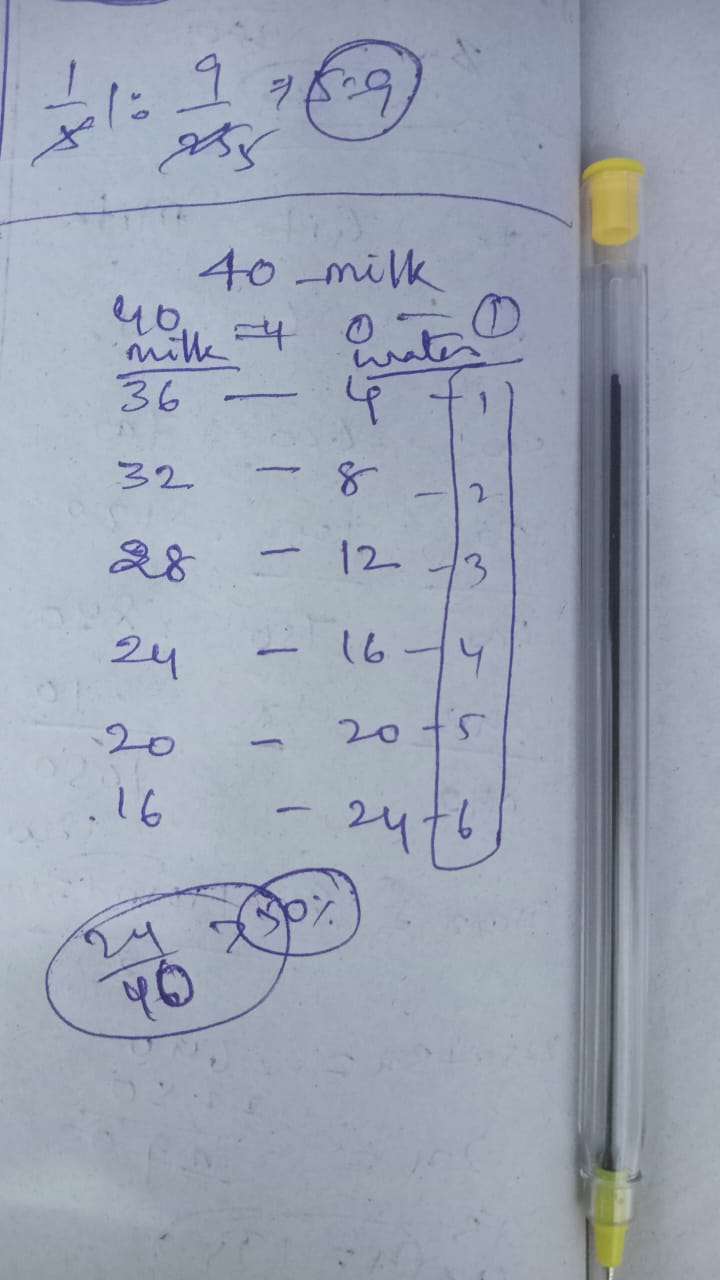 1/5 1 : 9/25 5 ⇒ 5:9
40 milk
40 - 4 0 - 1
milk water
36 — 4 - 1
32 - 8 - 2
28 - 12 - 3
24 - 16 - 4
20 - 20 - 5
16 - 24 - 6
24/40 > 50%